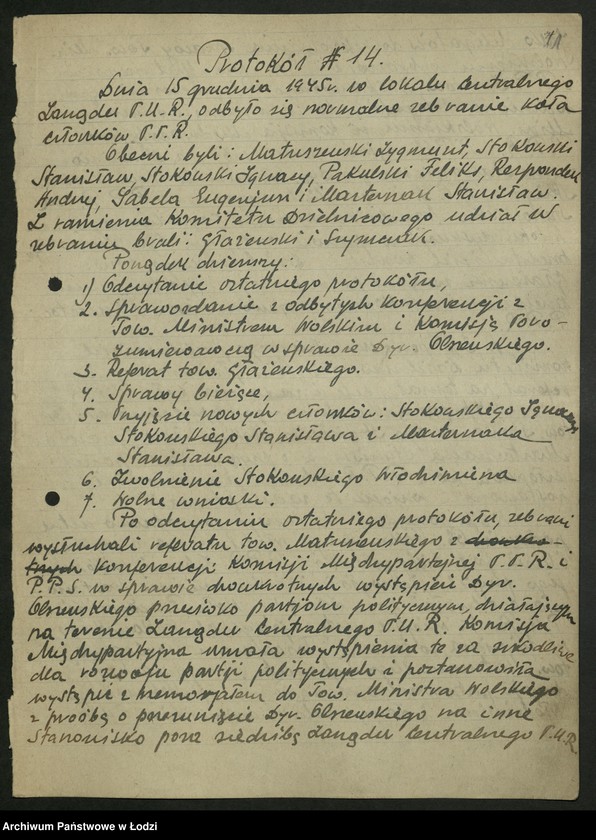 11
Protokół # 14.
Dnia 15 grudnia 1945r. w lokalu Centralnego
Zarządu P.U.R., odbyło się normalne zebranie koła
członków P.P.R.
Obecni byli: Matuszewski Zygmunt, Stokowski
Stanisław, Stokowski Ignacy, Pakulski Feliks, Respondek
Andrzej, Sabela Eugeniusz i Marternak Stanisław.
Z ramienia Komitetu Dzielnicowego udział w
zebraniu brali: Głażewski i Szymczak.
Porządek dzienny:
1) Odczytanie ostatniego protokółu,
2. Sprawozdanie z odbytych konferencji z
Tow. Ministrem Wolskim i Komisją Poro-
zumiewawczą w sprawie Dyr. Olszewskiego.
3. Referat tow. Głażewskiego.
4. Sprawy bieżące,
5. Przyjęcie nowych członków: Stokowskiego Ignacego
Stokowskiego Stanisława i Marternaka
Stanisława.
6. Zwolnienie Stokowskiego Włodzimierza
7. Wolne wnioski.
Po odczytaniu ostatniego protokółu, zebrani
wysłuchali referatu tow. Matuszewskiego z
konferencji Komisji Międzypartyjnej P.P.R. i
P.P.S. w sprawie dwukrotnych wystąpień Dyr.
Olszewskiego przeciwko partjom politycznym, działającym
na terenie Zarządu Centralnego P.U.R. Komisja
Międzypartyjna uznała wystąpienia te za szkodliwe
dla rozwoju partji politycznych i postanowiła
wystąpić z memorjałem do Tow. Ministra Wolskiego
z prośbą o przesunięcie Dyr. Olszewskiego na inne
Stanowisko poza siedzibą Zarządu Centralnego P.U.R.
Archiwum Państwowe w Łodzi